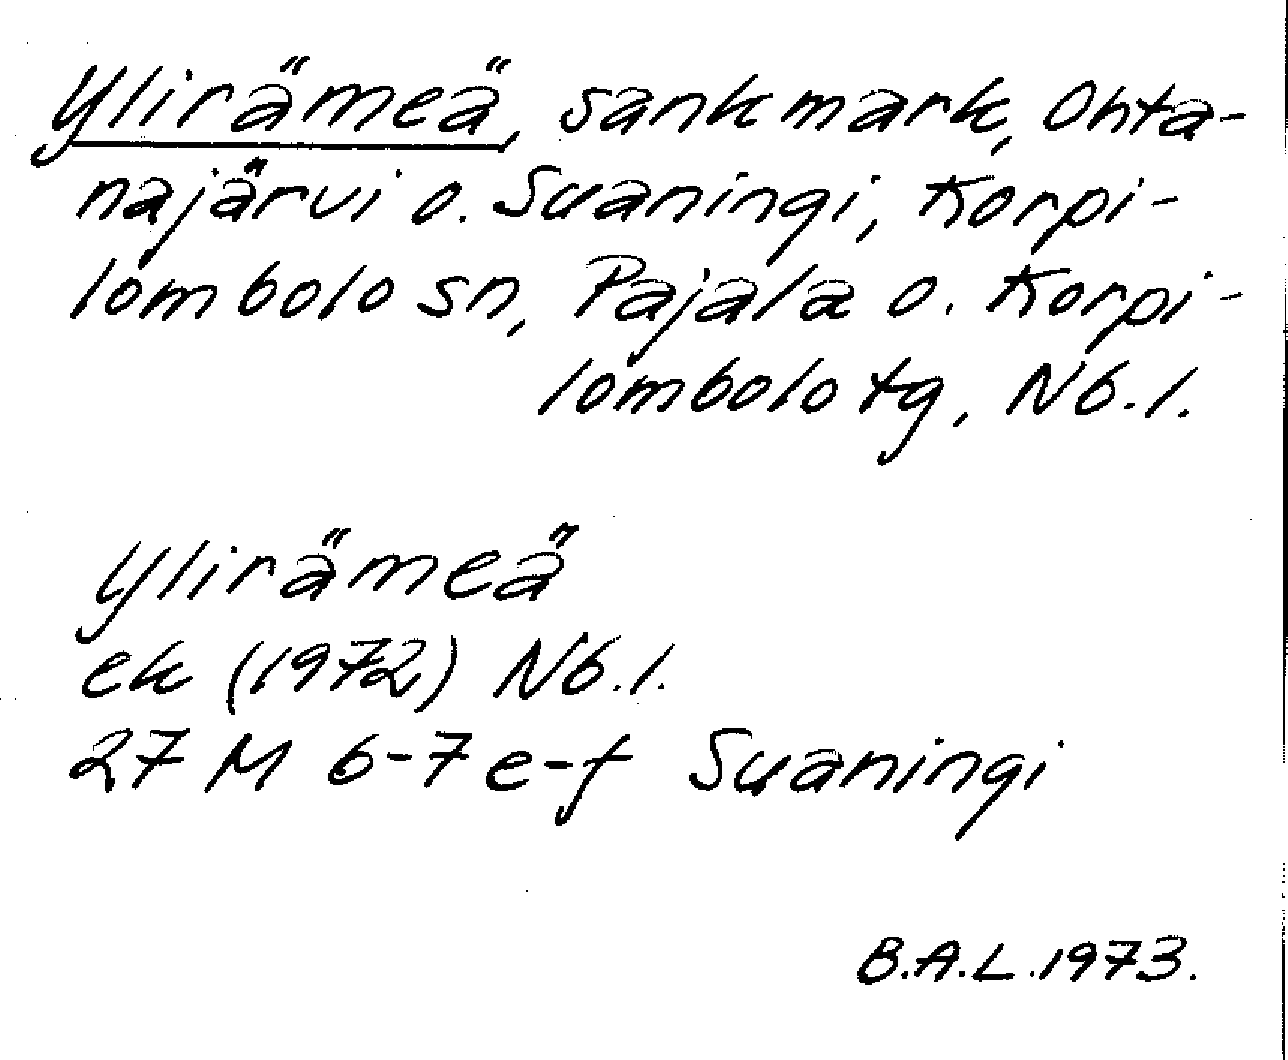 Ylirämeä, sankmark, Ohta-
najärvi o. Suaningi, Korpi-
lombolo sn, Pajala o. Korpi-
lombolo tg, Nb.l.
Ylirämeä
ek (1972) Nb.l.
27 M 6-7 e-f Suaningi
B.A.L. 1973.